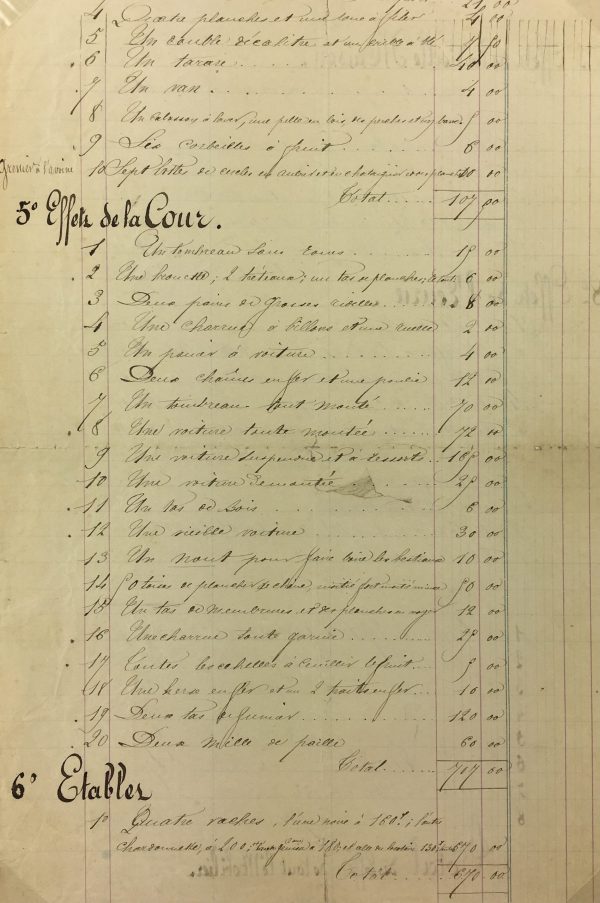 4 Quatre planches et une 4 00
5 Un double décalitre et un crible à blé 7 50
6 Un tarare 40 00
7 Un van 4 00
8 à laver, une pelle en bois des perches et 5 00
9 Six corbeilles à fruit 6 00
Grenier à l'avoine
10 Sept bottes de cercles en 10 00
Total 107 50
5° Effets de la Cour.
1 Un tombreau sans roues 15 00
2 Une brouette; 2 tréteaux; un tas de planches; 6 00
3 Deux paires de grosses ridelles 8 00
4 Une charrue à billons et une ruelle 2 00
5 Un panier à voiture 4 00
6 Deux chaînes en fer et une poulie 12 00
7 Un tombreau tout monté 70 00
8 Une voiture toute montée 72 00
9 Une voiture suspendue et à ressorts 165 00
10 Une voiture démontée 25 00
11 Un tas de bois 6 00
12 Une vieille voiture 30 00
13 Un pour faire boire les bestiaux 10 00
14 50 toises de plancher de chêne, moitié fort moitié mince 50 00
15 Un tas de membrures et des planches en noyer 12 00
16 Une charrue toute garnie 25 00
17 Toutes les échelles à cueillir le fruit 5 00
18 Une herse en fer et 2 traits en fer 10 00
19 Deux tas de fumier 120 00
20 Deux mille de paille 60 00
Total 707 00
6° Etables
1° Quatre vaches, l'une noire à 160f; l'autre
chardonnette, à 200; à 180, et 130f 670 00
Total 670 00